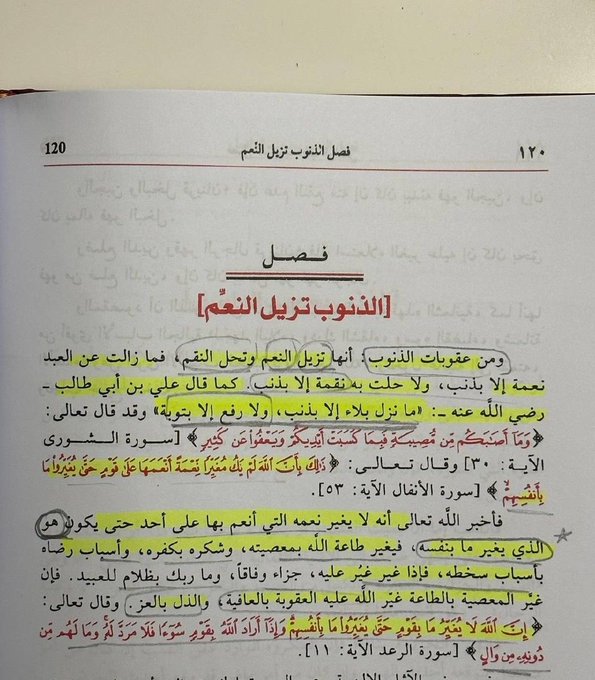 ١٢٠ فصل الذنوب تزيل النعم 120
فصل
[الذنوب تزيل النعم]
ومن عقوبات الذنوب: أنها تزيل النعم وتحل النقم، فما زالت عن العبد
نعمة إلا بذنب، ولا حلت به نقمة إلا بذنب. كما قال علي بن أبي طالب ـ
رضي اللَّه عنه ـ: «ما نزل بلاء إلا بذنب، ولا رفع إلا بتوبة» وقد قال تعالى:
﴿وَمَآ أَصَٰبَكُم مِّن مُّصِيبَةٍ فَبِمَا كَسَبَتْ أَيْدِيكُمْ وَيَعْفُوا۟ عَن كَثِيرٍ﴾ [سورة الشورى
الآية: ٣٠] وقال تعالى: ﴿ذَٰلِكَ بِأَنَّ ٱللَّهَ لَمْ يَكُ مُغَيِّرًا نِّعْمَةً أَنْعَمَهَا عَلَىٰ قَوْمٍ حَتَّىٰ يُغَيِّرُوا۟ مَا
بِأَنفُسِهِمْ﴾ [سورة الأنفال الآية: ٥٣].
فأخبر اللَّه تعالى أنه لا يغير نعمه التي أنعم بها على أحد حتى يكون هو
الذي يغير ما بنفسه، فيغير طاعة اللَّه بمعصيته، وشكره بكفره، وأسباب رضاه
بأسباب سخطه، فإذا غير غير عليه، جزاء وفاقاً، وما ربك بظلام للعبيد. فإن
غيَّر المعصية بالطاعة غيَّر اللَّه عليه العقوبة بالعافية، والذل بالعز. وقال تعالى:
﴿إِنَّ ٱللَّهَ لَا يُغَيِّرُ مَا بِقَوْمٍ حَتَّىٰ يُغَيِّرُوا۟ مَا بِأَنفُسِهِمْ وَإِذَآ أَرَادَ ٱللَّهُ بِقَوْمٍ سُوٓءًا فَلَا مَرَدَّ لَهُۥ وَمَا لَهُم مِّن
دُونِهِۦ مِن وَالٍ﴾ [سورة الرعد الآية: ١١].